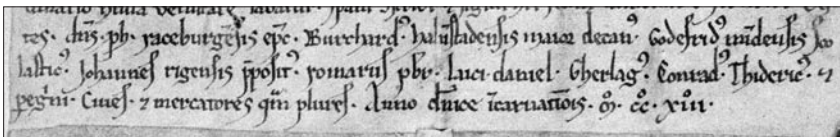 tes. dn̄s. ph̄. raceburgēsis ep̄c. Burchardꝰ. halūstadensis maior decanꝰ. Godefridꝰ mīdensis sco
lasticꝰ. Johannes rigensis p̄positꝰ. romarus pb̄r. Luci daniel. Gherlagꝰ. Conradꝰ. Thidericꝰ. ⁊
peg̃ni. Ciues. ⁊ mercatores q̄m plures. Anno dn̄ice īcarnationis. m̊. c̊c̊. xiii.